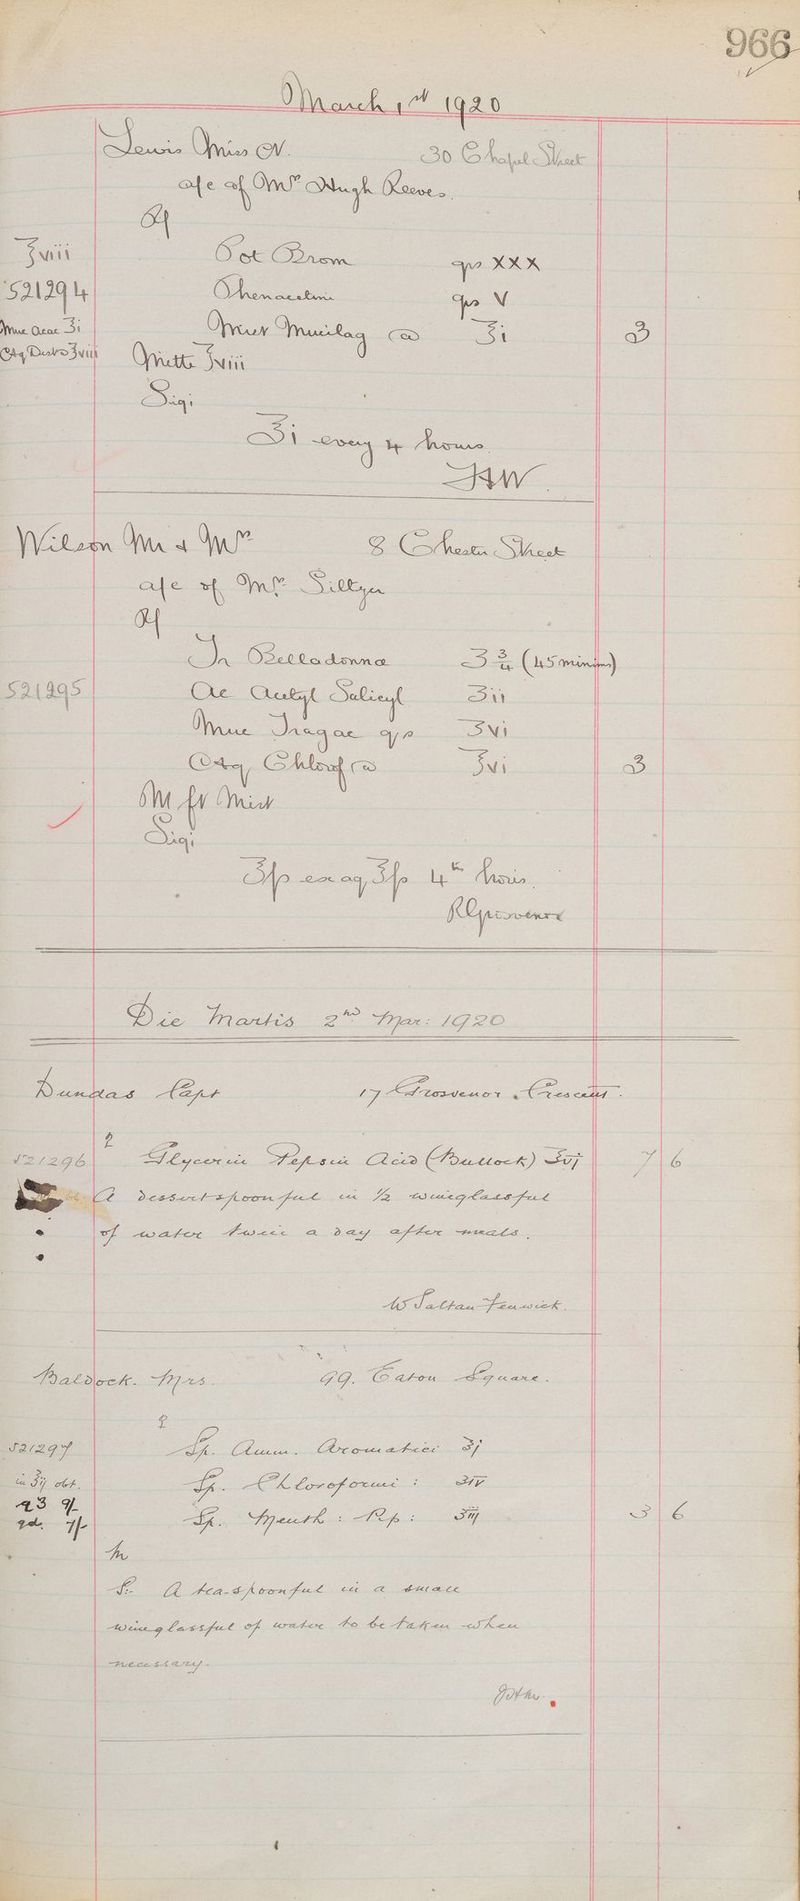 966
March 1st 1920
Lewis Miss N. 30 Chapel Street
a/c of Mrs Hugh Reeves.
℞
℥viii Pot Brom grs XXX
521294 Phenacetin grs V
Muc Acac ʒi Mist Mucilag @ ℥i 3
Aq Dest @ ℥viii Mitte ℥viii
Sig:
℥i every 4 hours.
Wilson Mr & Mrs 8 Chester Street
a/c of Mrs
℞
Tr Belladonnae ʒ ¾ (45 minims)
521295 Ac Acetyl Salicyl ʒii
Muc Tragac qs ʒvi
Aq Chlorof @ ℥vi 3
M ft Mist
Sig:
℥ſs ex aq ℥ſs 4th horis.
R Grosvenor
Die Martis 2nd Mar: 1920
Dundas Capt 17 Grosvenor Crescent.
℞
521296 Glycerin Pepsin Acid (Bullock) ℥vj 7 6
A dessertspoonful in ½ wineglassful
of water twice a day after meals.
W Saltau Fenwick.
Baldock. Mrs. 99. Eaton Square.
℞
521297 Sp. Amm. Aromatici ℥j
in ℥ij obt. Sp. Chloroformi: ʒiv
q3 9/- Sp. Menth: Pip: ʒiij 3 6
qd. 7/-
M
S:- A tea-spoonful in a small
wineglassful of water to be taken when
necessary.